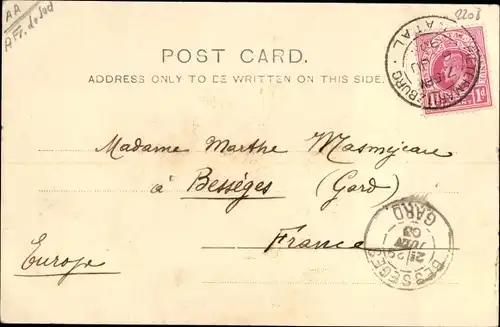 AA
Afr. du sud
2203
POST CARD.
ADDRESS ONLY TO BE WRITTEN ON THIS SIDE.
NATAL
1d
Madame Marthe Masméjeare
à Bessèges (Gard)
France
Europe
BESSEGES
GARD
03